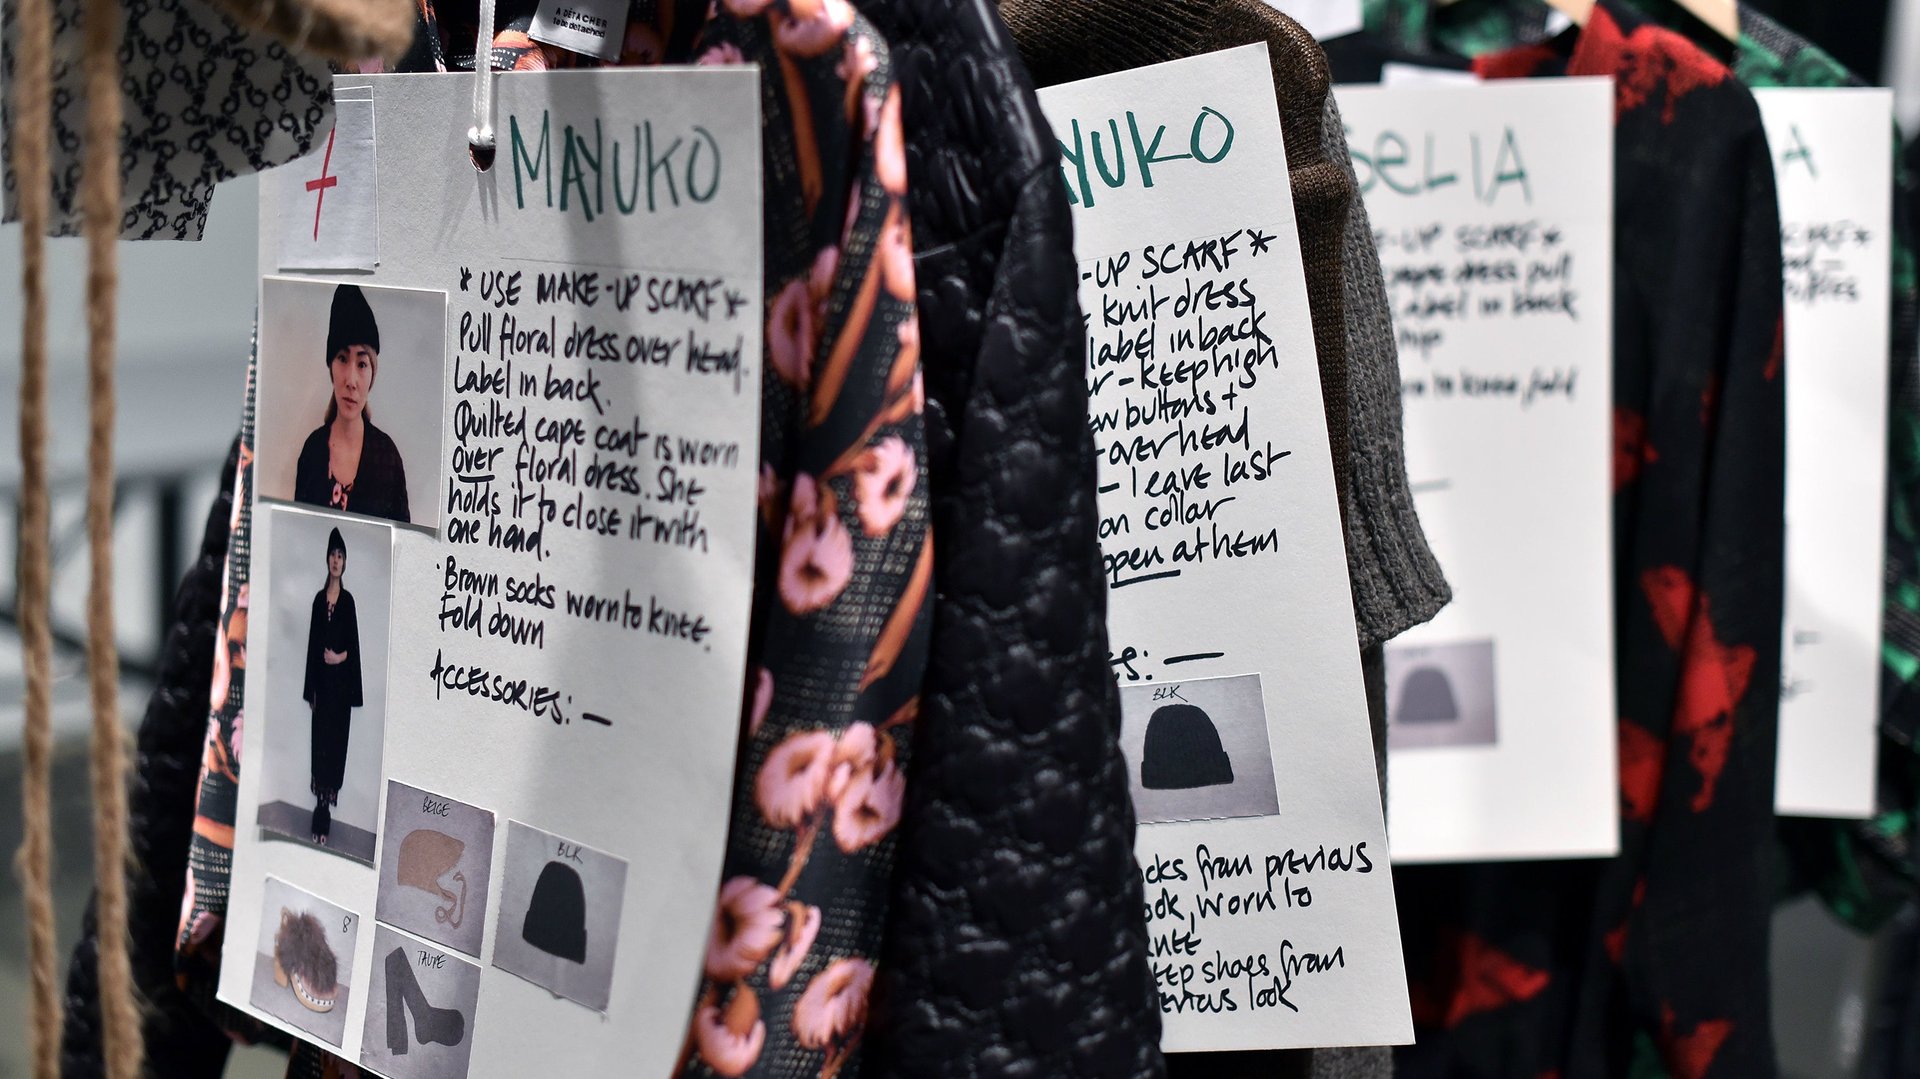 A DÉTACHER
to be detached
MAYUKO
* USE MAKE-UP SCARF *
Pull floral dress over head.
Label in back.
Quilted cape coat is worn
over floral dress. She
holds it to close it with
one hand.
· Brown socks worn to knee.
Fold down
ACCESSORIES: —
BEIGE
BLK
8
TAUPE
YUKO
-UP SCARF *
knit dress
label in back
- keep high
buttons +
- over head
- leave last
on collar
open at hem
: —
BLK
from previous
, worn to
shoes from
look
SELIA
-UP SCARF *
dress pull
label in back
hip
to knee, fold
A